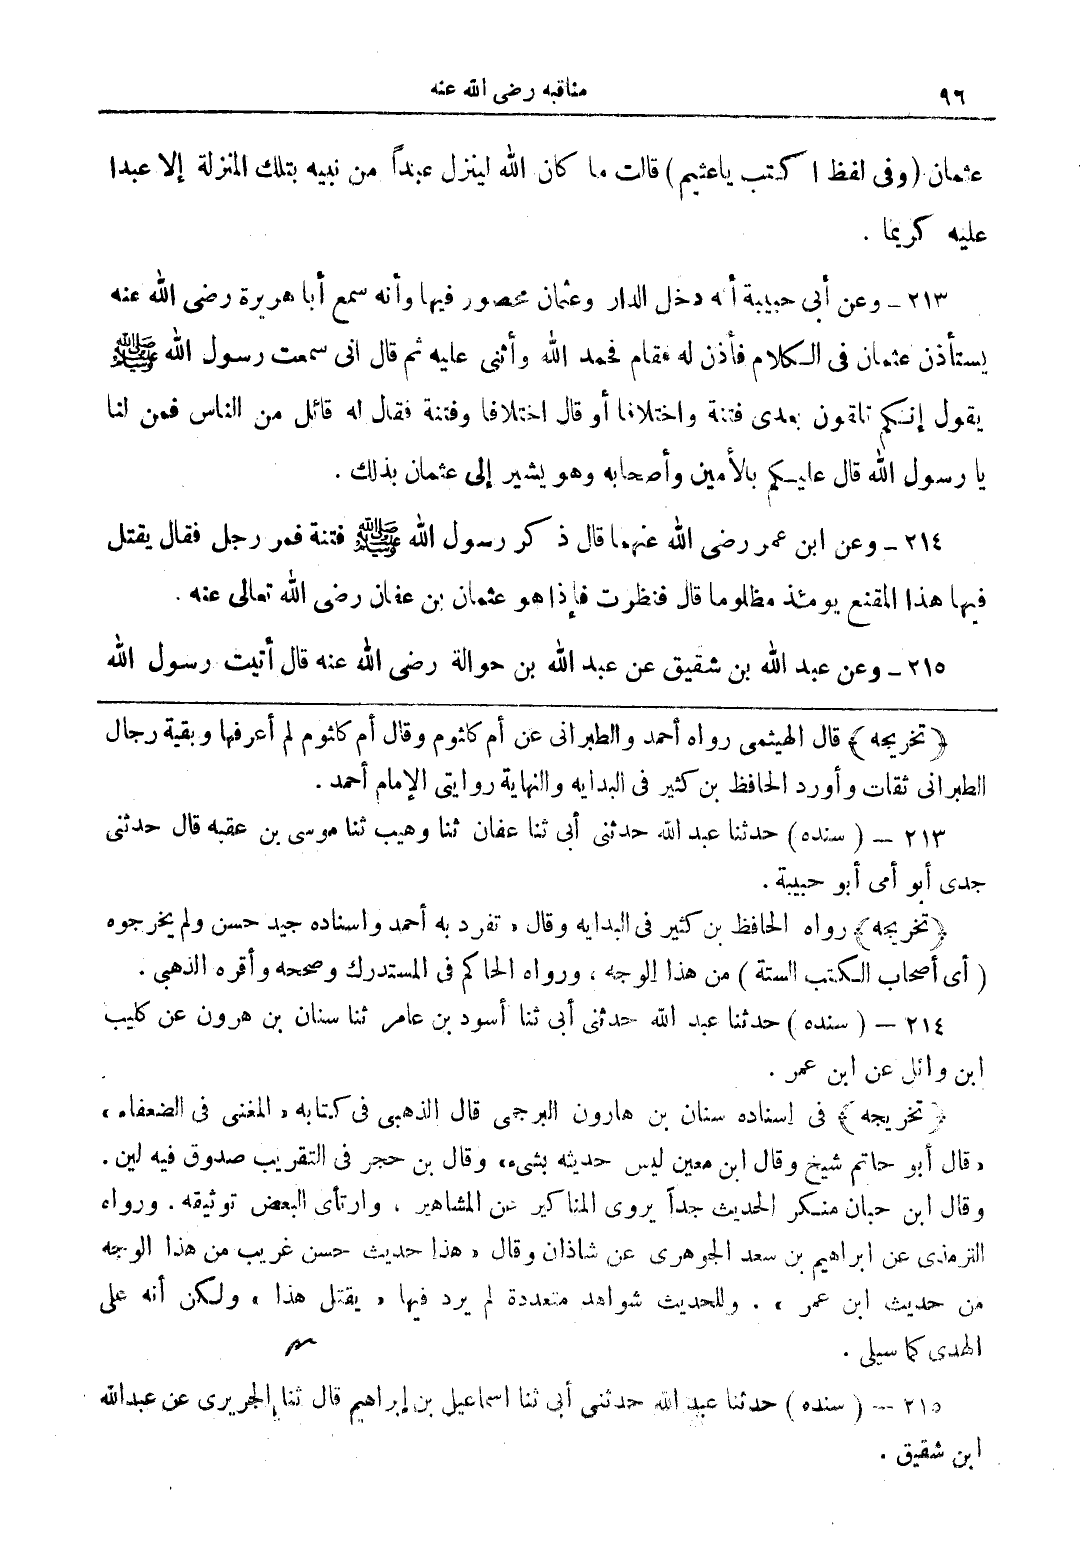 ٩٦ مناقبه رضى الله عنه
عثمان (وفى لفظ اكتب ياعثيم) قالت ما كان الله لينزل عبداً من نبيه بتلك المنزلة إلا عبدا
عليه كريما .
٢١٣ ـ وعن أبى حبيبة أنه دخل الدار وعثمان محصور فيها وأنه سمع أبا هريرة رضى الله عنه
يستأذن عثمان فى الكلام فأذن له فقام فحمد الله وأثنى عليه ثم قال انى سمعت رسول الله ﷺ
يقول إنكم تلقون بعدى فتنة واختلافا أو قال اختلافا وفتنة فقال له قائل من الناس فمن لنا
يا رسول الله قال عليكم بالأمين وأصحابه وهو يشير إلى عثمان بذلك .
٢١٤ ـ وعن ابن عمر رضى الله عنهما قال ذكر رسول الله ﷺ فتنة فمر رجل فقال يقتل
فيها هذا المقنع يومئذ مظلوما قال فنظرت فإذا هو عثمان بن عفان رضى الله تعالى عنه .
٢١٥ ـ وعن عبد الله بن شقيق عن عبد الله بن حوالة رضى الله عنه قال أتيت رسول الله
﴿تخريجه﴾ قال الهيثمى رواه أحمد والطبرانى عن أم كلثوم وقال أم كلثوم لم أعرفها وبقية رجال
الطبرانى ثقات وأورد الحافظ بن كثير فى البدايه والنهاية روايتى الإمام أحمد .
٢١٣ ـ (سنده) حدثنا عبد الله حدثنى أبى ثنا عفان ثنا وهيب ثنا موسى بن عقبه قال حدثنى
جدى أبو أمى أبو حبيبة .
﴿تخريجه﴾ رواه الحافظ بن كثير فى البدايه وقال « تفرد به أحمد واسناده جيد حسن ولم يخرجوه
(أى أصحاب الكتب الستة) من هذا الوجه ، ورواه الحاكم فى المستدرك وصححه وأقره الذهبى .
٢١٤ ـ (سنده) حدثنا عبد الله حدثنى أبى ثنا أسود بن عامر ثنا سنان بن هرون عن كليب
ابن وائل عن ابن عمر .
﴿تخريجه﴾ فى إسناده سنان بن هارون البرجمى قال الذهبى فى كتابه « المغنى فى الضعفاء »
« قال أبو حاتم شيخ وقال ابن معين ليس حديثه بشىء» وقال بن حجر فى التقريب صدوق فيه لين .
وقال ابن حبان منكر الحديث جداً يروى المناكير عن المشاهير ، وارتأى البعض توثيقه . ورواه
الترمذى عن ابراهيم بن سعد الجوهرى عن شاذان وقال « هذا حديث حسن غريب من هذا الوجه
من حديث ابن عمر » . وللحديث شواهد متعددة لم يرد فيها « يقتل هذا » ولكن أنه على
الهدى كما سيلى .
٢١٥ ـ (سنده) حدثنا عبد الله حدثنى أبى ثنا اسماعيل بن إبراهيم قال ثنا الجريرى عن عبدالله
ابن شقيق .